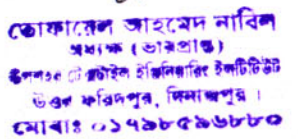 তোফায়েল আহমেদ নাবিল
অধ্যক্ষ (ভারপ্রাপ্ত)
টেক্সটাইল ইঞ্জিনিয়ারিং ইনস্টিটিউট
উত্তর ফরিদপুর, দিনাজপুর।
মোবাঃ ০১৭৯৮৫৯৬৮৮০